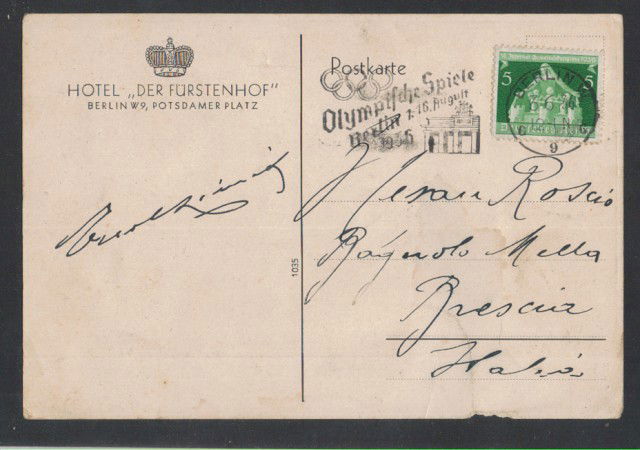 HOTEL „DER FÜRSTENHOF"
BERLIN W9, POTSDAMER PLATZ
Postkarte
Olympische Spiele
Berlin 1.-16. August
1936
5 5
BERLIN
9
1035
Roscio
Bagnolo Mella
Brescia
Italia